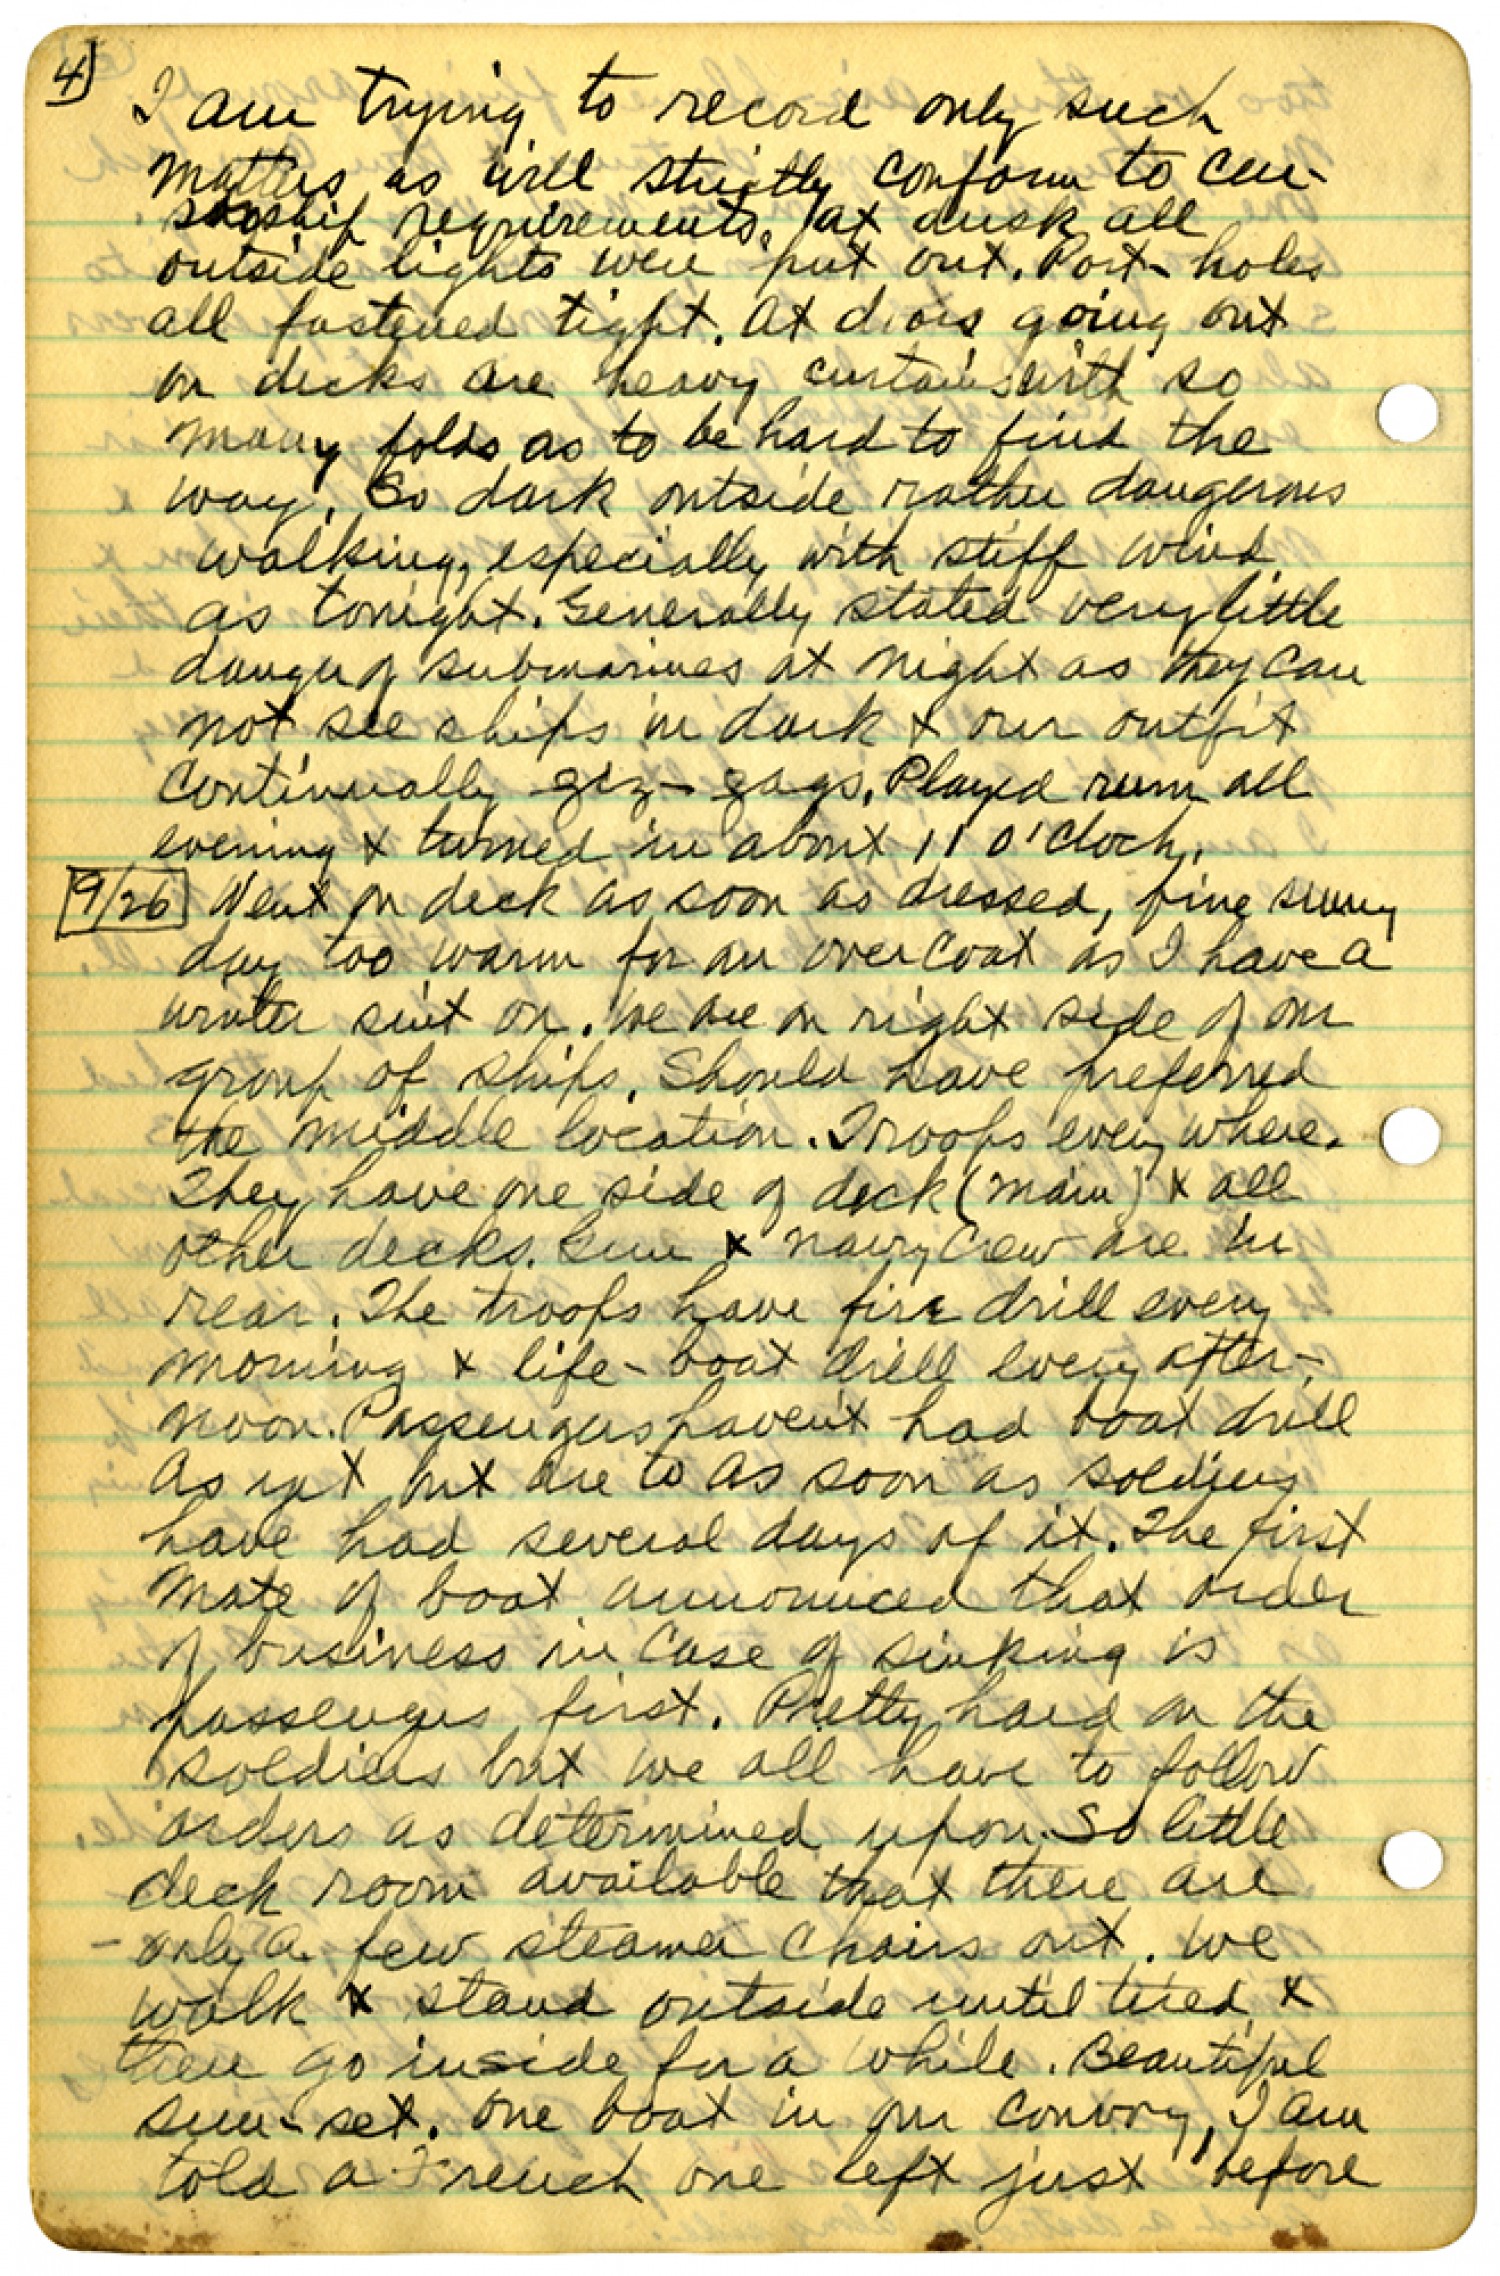 4)
I am trying to record only such
matters as will strictly conform to cen-
sorship requirements. At dusk all
outside lights were put out. Port-holes
all fastened tight. At doors going out
on decks are heavy curtains with so
many folds as to be hard to find the
way. So dark outside rather dangerous
walking, especially with stiff wind
as tonight. Generally stated very little
danger of submarines at night as they can
not see ships in dark & our outfit
continually ziz-zags. Played rum all
evening & turned in about 11 o'clock.
9/26 Went on deck as soon as dressed, fine sunny
day too warm for an overcoat as I have a
winter suit on. We are on right side of our
group of ships. Should have preferred
the middle location. Troops every where.
They have one side of deck (main) & all
other decks. Gun & navy crew are in
rear. The troops have fire drill every
morning & life-boat drill every after-
noon. Passengers haven't had boat drill
as yet but are to as soon as soldiers
have had several days of it. The first
mate of boat announced that order
of business in case of sinking is
passengers first. Pretty hard on the
soldiers but we all have to follow
orders as determined upon. So little
deck room available that there are
- only a few steamer chairs out. We
walk & stand outside until tired &
then go inside for a while. Beautiful
sun-set. One boat in our convoy, I am
told a French one left just before